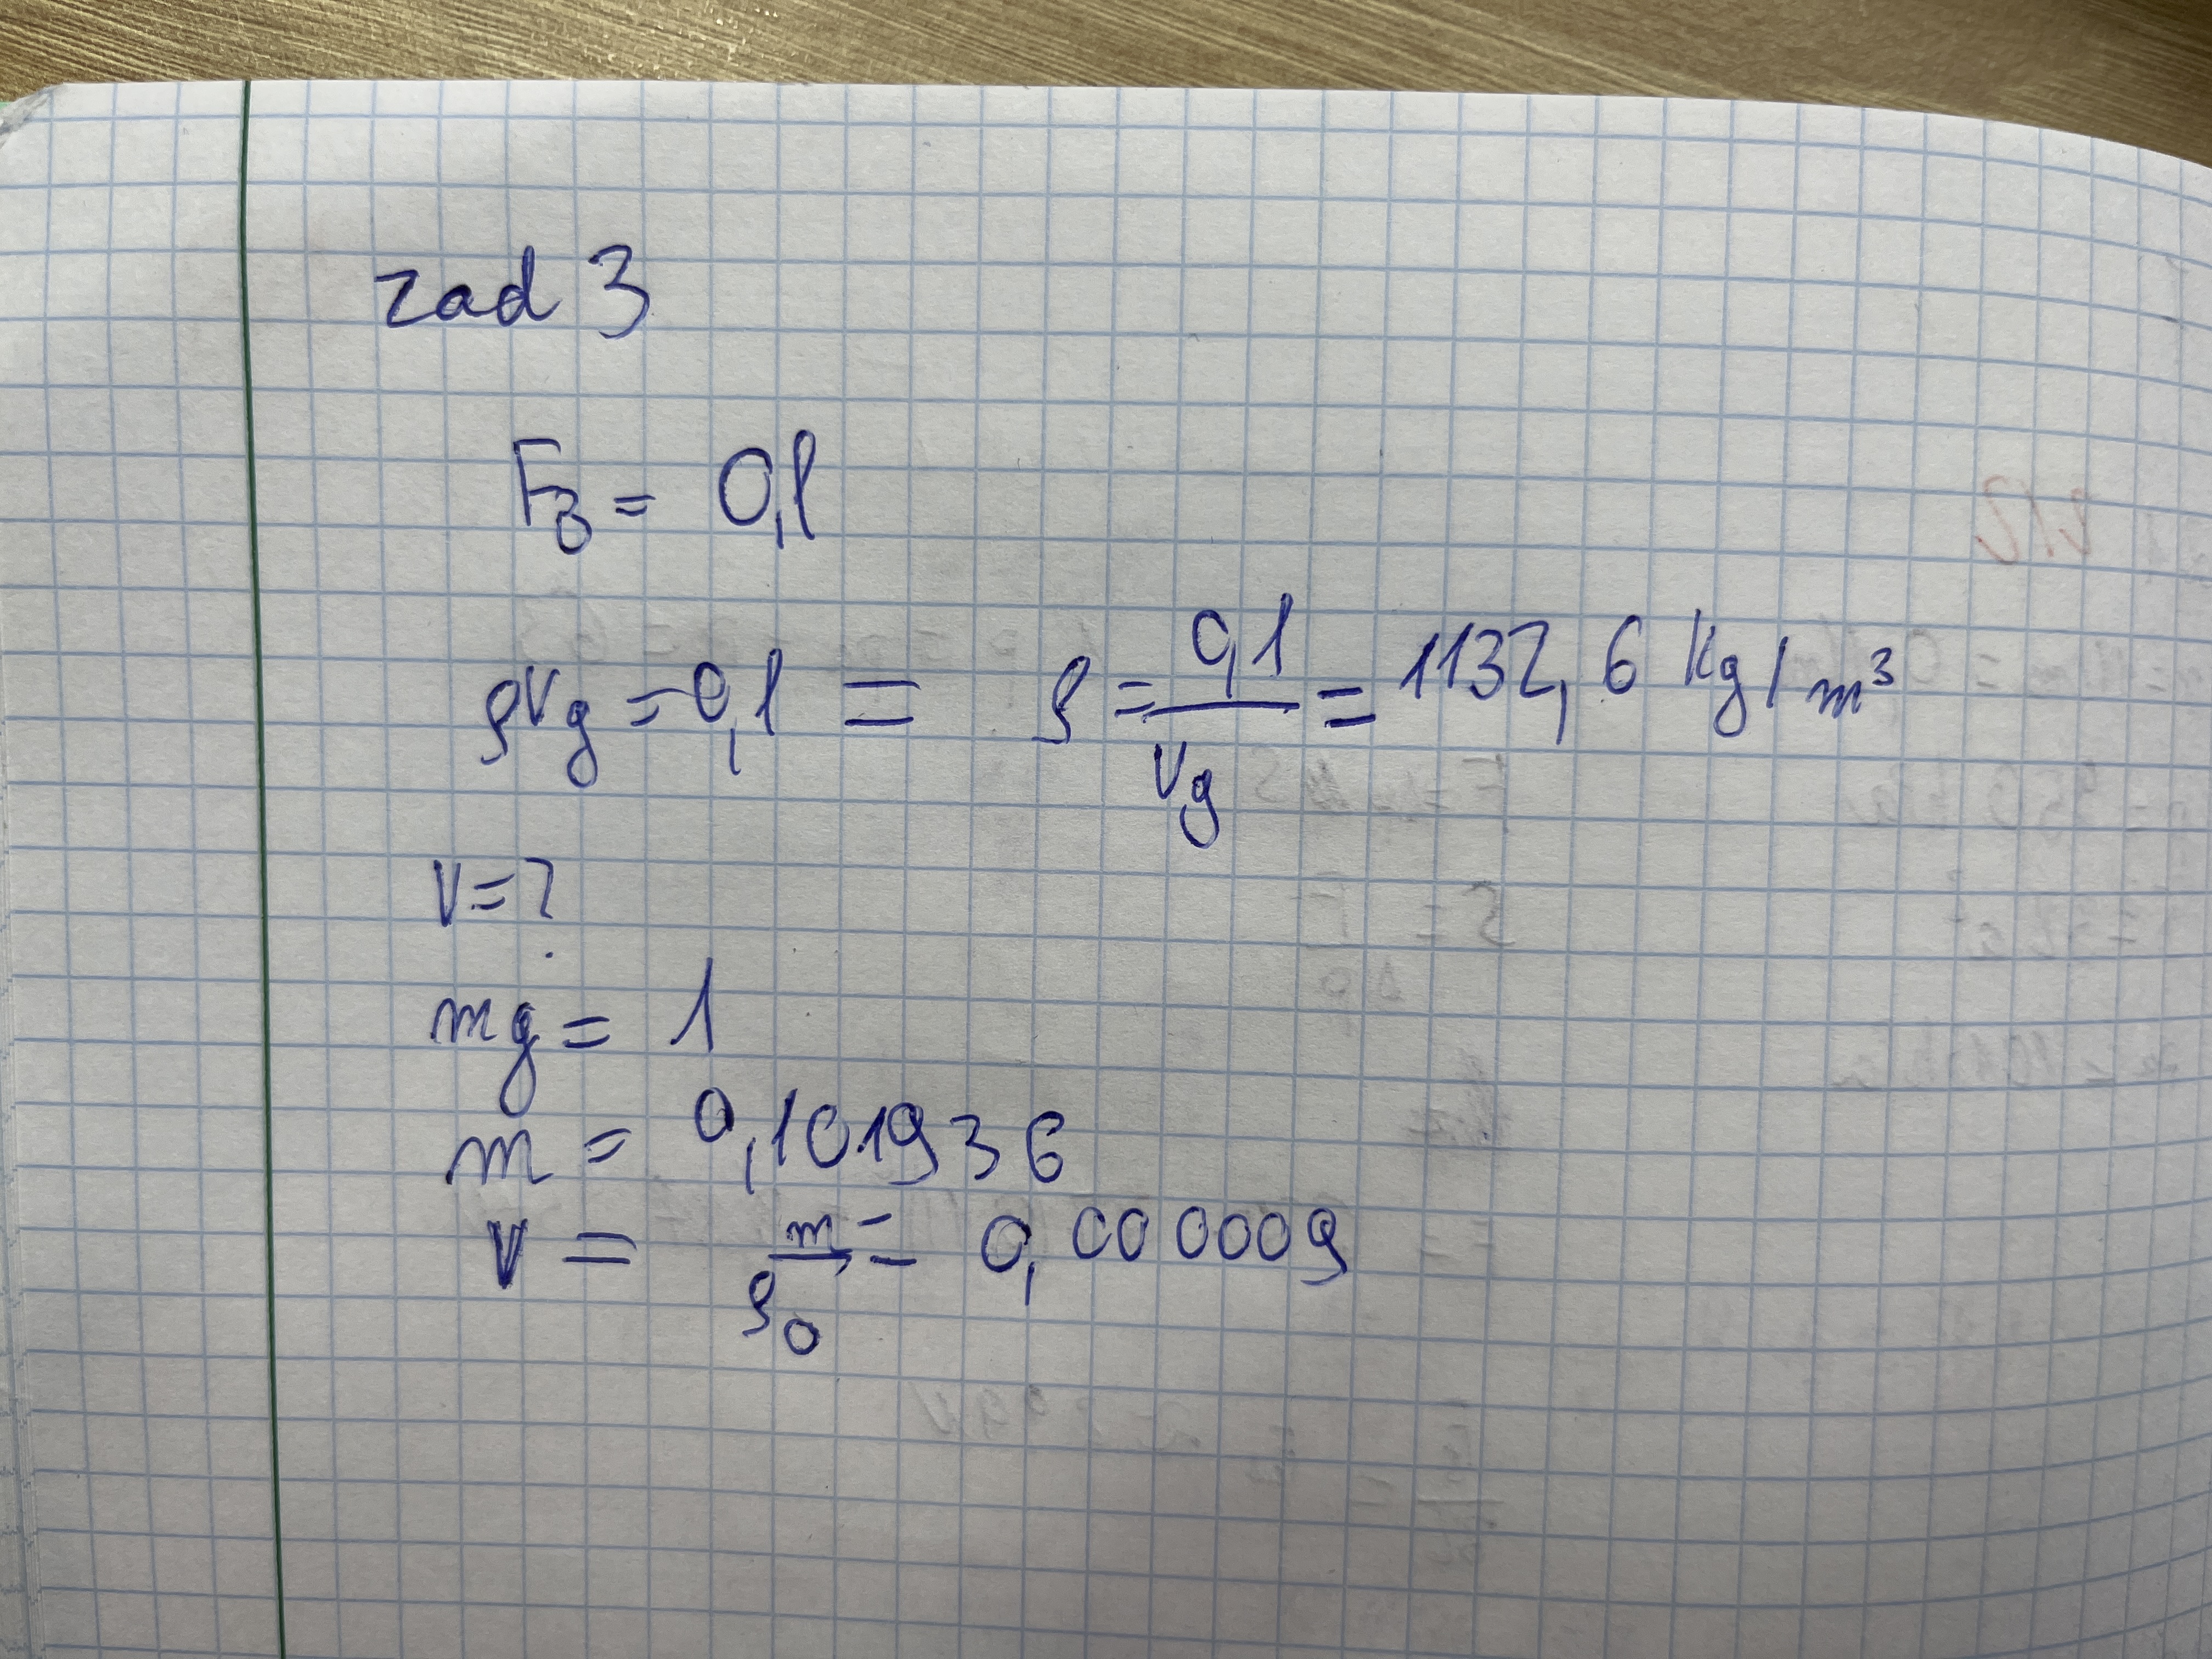 zad 3
F₃ = 0,1
ρVg = 0,1 = ρ = 0,1 / Vg = 1132,6 kg/m³
V = ?
mg = 1
m = 0,101936
V = m / ρ₀ = 0,000009